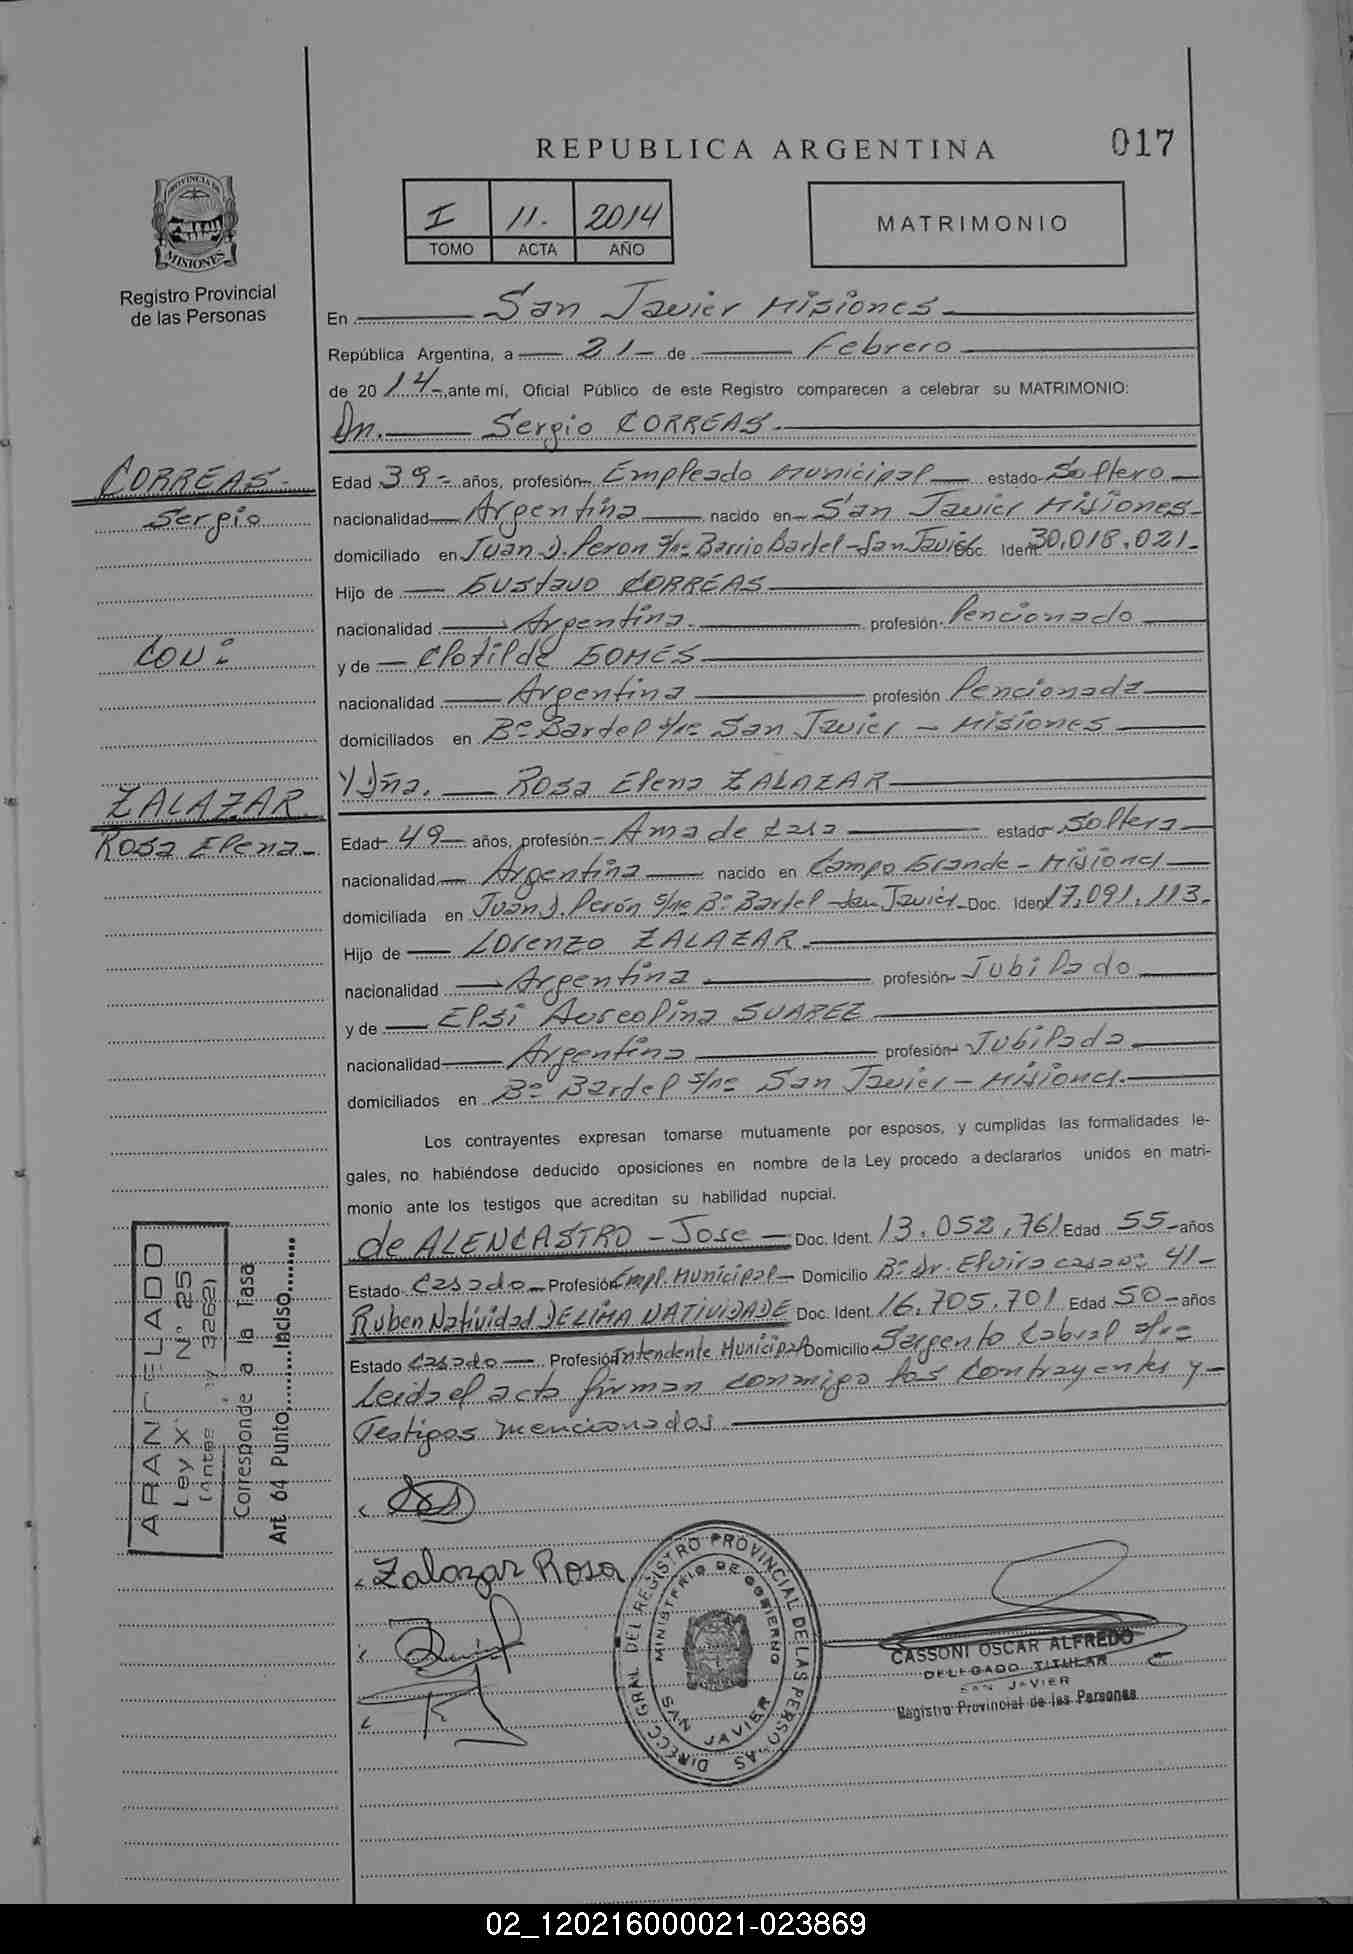 REPUBLICA ARGENTINA
017
PROVINCIA DE
MISIONES
Registro Provincial
de las Personas
I 11. 2014
TOMO ACTA AÑO
MATRIMONIO
En San Javier Misiones
República Argentina, a 21 de Febrero
de 2014, ante mí, Oficial Público de este Registro comparecen a celebrar su MATRIMONIO:
Dn. Sergio CORREAS.
CORREAS
Sergio
CON:
ZALAZAR
Rosa Elena
Edad 39 años, profesión Empleado Municipal estado Soltero
nacionalidad Argentina nacido en San Javier Misiones
domiciliado en Juan D. Peron s/nº Barrio Bardel - San Javier Doc. Ident. 30,018,021
Hijo de Gustavo CORREAS
nacionalidad Argentina. profesión Pencionado
y de Clotilde GOMES
nacionalidad Argentina profesión Pencionada
domiciliados en Bº Bardel s/nº San Javier - Misiones
Y Dña. Rosa Elena ZALAZAR
Edad 49 años, profesión Ama de casa estado Soltera
nacionalidad Argentina nacido en Campo Grande - Misiones
domiciliada en Juan D. Perón s/nº Bº Bardel - San Javier Doc. Ident 17,091,113.
Hijo de Lorenzo ZALAZAR.
nacionalidad Argentina profesión Jubilado
y de Elsi Aureolina SUAREZ
nacionalidad Argentina profesión Jubilada
domiciliados en Bº Bardel s/nº San Javier - Misiones.
Los contrayentes expresan tomarse mutuamente por esposos, y cumplidas las formalidades le-
gales, no habiéndose deducido oposiciones en nombre de la Ley procedo a declararlos unidos en matri-
monio ante los testigos que acreditan su habilidad nupcial.
de ALENCASTRO - Jose Doc. Ident. 13,052,761 Edad 55 años
Estado Casado Profesión Empl. Municipal Domicilio Bº Dr. Elvira casa nº 41
Ruben Natividad DE LIMA NATIVIDADE Doc. Ident. 16,705,701 Edad 50 años
Estado Casado Profesión Intendente Municipal Domicilio Sargento Cabral s/nº
Leida el acta firman conmigo los Contrayentes y
Testigos mencionados.
ARANCELADO
Ley X Nº 25
(Antes 3262)
Corresponde a la Tasa
Art 64 Punto.........Inciso.......
Zalazar Rosa
DIRECC. GRAL DEL REGISTRO PROVINCIAL DE LAS PERSONAS
MINISTERIO DE GOBIERNO
SAN JAVIER
CASSONI OSCAR ALFREDO
DELEGADO TITULAR
SAN JAVIER
Registro Provincial de las Personas
02_120216000021-023869